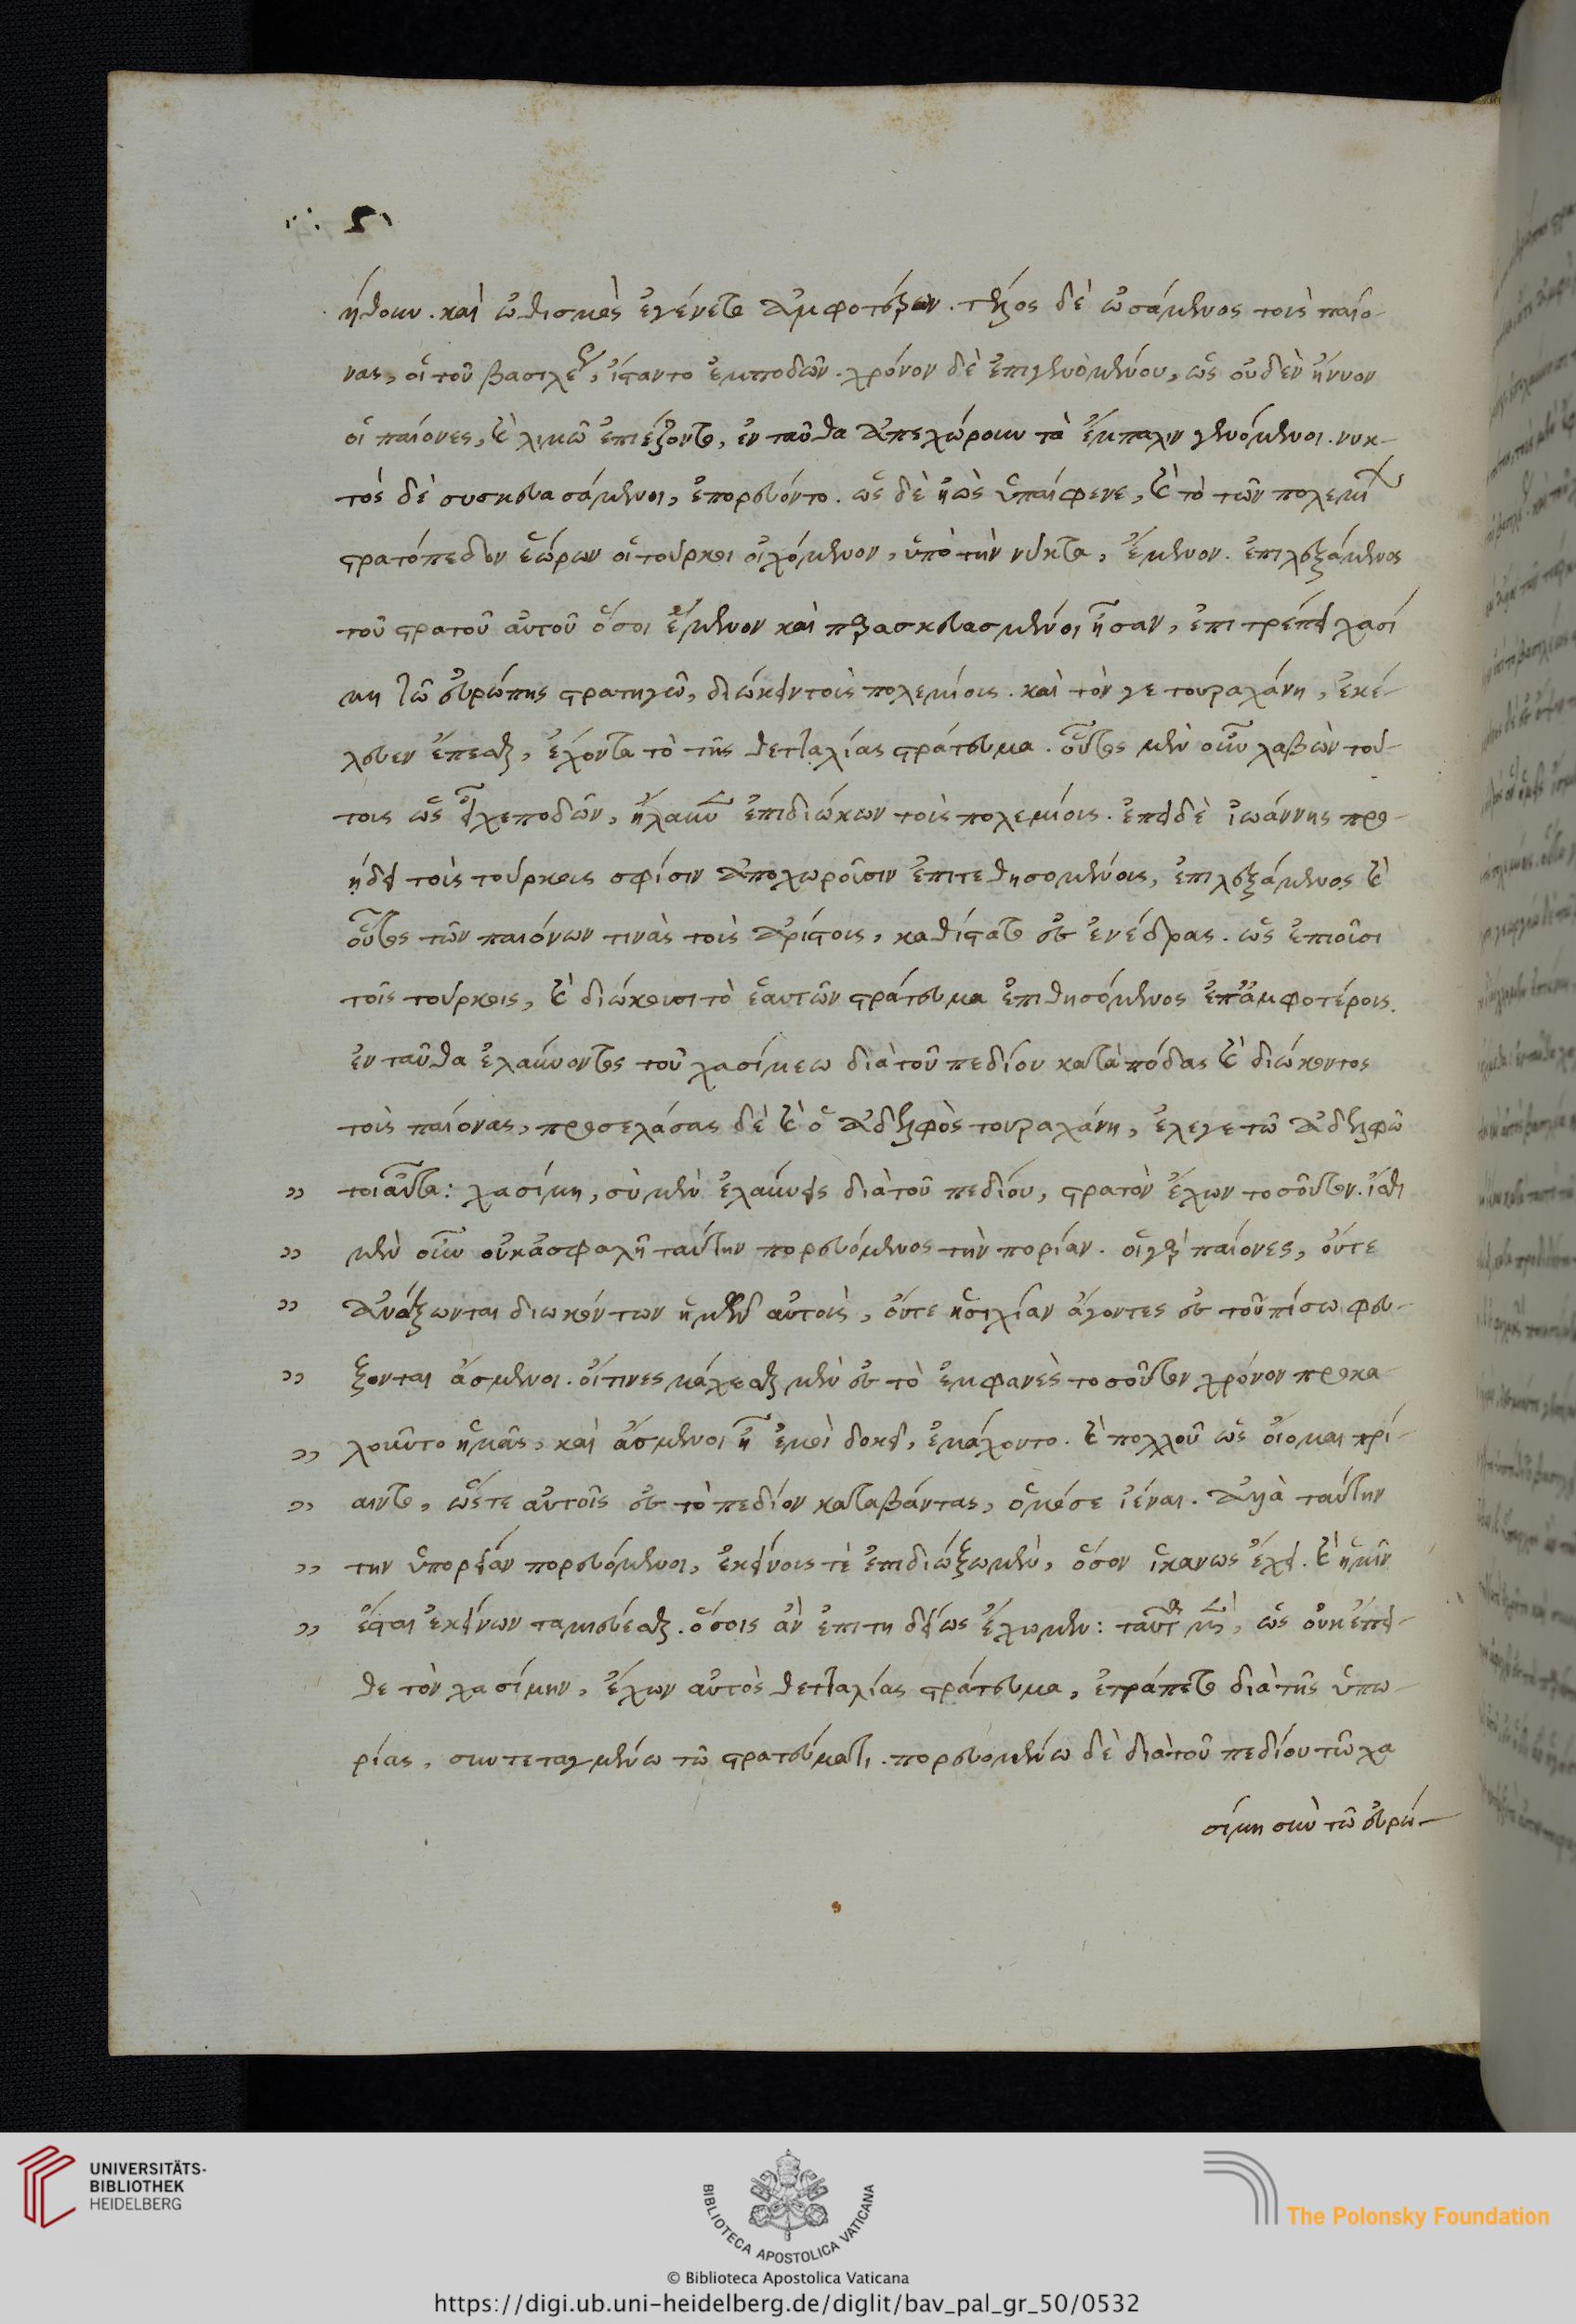 ήθουν. καὶ ὠθισμὸς ἐγένετο ἀμφοτέρων. τέλος δὲ ὠσάμενος τοὺς παίο-
νας, οἱ τοῦ βασιλέως, ἵσταντο ἐμποδών. χρόνου δὲ ἐπιγενομένου, ὡς οὐδὲν ἤνυον
οἱ παίονες, καὶ λιμῶ ἐπιέζοντο, ἐνταῦθα ἀπεχώρουν τὰ ἔμπαλιν γενόμενοι. νυκ-
τὸς δὲ συσκευασάμενοι, ἐπορεύοντο. ὡς δὲ ἠὼς ὑπαίφενε, καὶ τὸ τῶν πολεμίων
στρατόπεδον ἑώρων οἱ τοῦρκοι οἰχόμενον, ὑπὸ τὴν νύκτα, ἔμενον. ἐπιλεξάμενος
τοῦ στρατοῦ αὐτοῦ ὅσοι ἔμενον καὶ παρασκευασμένοι ἦσαν, ἐπιτρέπει χασί
μη τῶ εὐρώπης στρατηγῶ, διώκειν τοὺς πολεμίους. καὶ τόν γε τουραχάνη, ἐκέ-
λευεν ἕπεσθαι, ἔχοντα τὸ τῆς θετταλίας στράτευμα. οὗτος μὲν οὖν λαβὼν τού-
τους ὡς εἶχε ποδῶν, ἤλαυνεν ἐπιδιώκων τοὺς πολεμίους. ἐπεὶ δὲ ἰωάννης προ-
ήδει τοὺς τούρκους σφίσιν ἀποχωροῦσιν ἐπιτεθησομένους, ἐπιλεξάμενος καὶ
οὗτος τῶν παιόνων τινὰς τοὺς ἀρίστους, καθίστατο εἰς ἐνέδρας. ὡς ἐπιοῦσι
τοῖς τούρκοις, καὶ διώκουσι τὸ ἑαυτῶν στράτευμα ἐπιθησόμενος ἐπ' ἀμφοτέροις.
ἐνταῦθα ἐλαύνοντος τοῦ χασίμεω διὰ τοῦ πεδίου κατὰ πόδας καὶ διώκοντος
τοὺς παίονας, προσελάσας δὲ καὶ ὁ ἀδελφὸς τουραχάνη, ἔλεγε τῶ ἀδελφῶ
" τοιαῦτα: χασίμη, σὺ μὲν ἐλαύνεις διὰ τοῦ πεδίου, στρατὸν ἔχων τοσοῦτον. ἴσθι
" μὲν οὖν οὐκ ἀσφαλῆ ταύτην πορευόμενος τὴν πορίαν. οἱ γὰρ παίονες, οὔτε
" ἀνάξωνται διωκόντων ἡμῶν αὐτοὺς, οὔτε ἡσιχίαν ἄγοντες εἰς τοῦπίσω φευ-
" ξονται ἄσμενοι. οἵτινες μάχεσθαι μὲν εἰς τὸ ἐμφανὲς τοσοῦτον χρόνον προκα-
" λοιῦντο ἡμᾶς, καὶ ἄσμενοι ᾗ ἐμοὶ δοκεῖ, ἐμάχοντο. καὶ πολλοῦ ὡς οἴομαι πρί-
" αιντο, ὥστε αὐτοῖς εἰς τὸ πεδίον καταβάντας, ὁμόσε ἰέναι. ἀλλὰ ταύτην
" την ὑπορείαν πορευόμενοι, ἐκείνοις τὲ ἐπιδιώξωμεν, ὅσον ἱκανως ἔχει. καὶ ἡμῖν
" ἔσται ἐκείνων ταμιεύεσθαι. ὅσοις ἂν ἐπιτηδείως ἔχωμεν: ταῦτα εἰπὼν, ὡς οὐκ ἔπει-
θε τὸν χασίμην, ἔχων αὐτὸς θετταλίας στράτευμα, ἐτράπετο διὰ τῆς ὑπω-
ρίας, συντεταγμένω τῶ στρατεύματι. πορευομένω δὲ διὰ τοῦ πεδίου τῶ χα
σίμη σὺν τῶ εὐρώ-
UNIVERSITÄTS-
BIBLIOTHEK
HEIDELBERG
BIBLIOTECA APOSTOLICA VATICANA
The Polonsky Foundation
© Biblioteca Apostolica Vaticana
https://digi.ub.uni-heidelberg.de/diglit/bav_pal_gr_50/0532